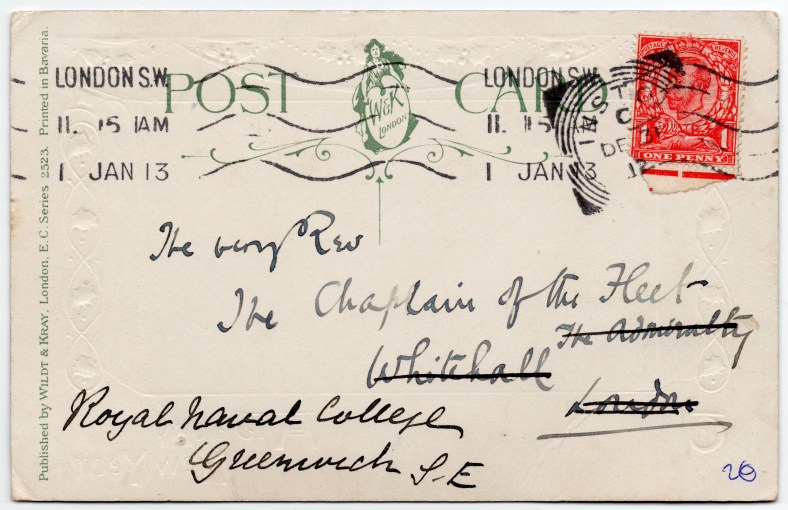 Published by WILDT & KRAY, London. E.C. Series 2523. Printed in Bavaria.
POST CARD
W&K
LONDON
LONDON S.W.
11. 15 AM
1 JAN 13
LONDON S.W.
11. 15 AM
1 JAN 13
POSTAGE REVENUE
ONE PENNY
1
INST
C
DE 31
12
The very Rev
The Chaplain of the Fleet
The Admiralty
Whitehall
London
Royal Naval College
Greenwich S-E
20